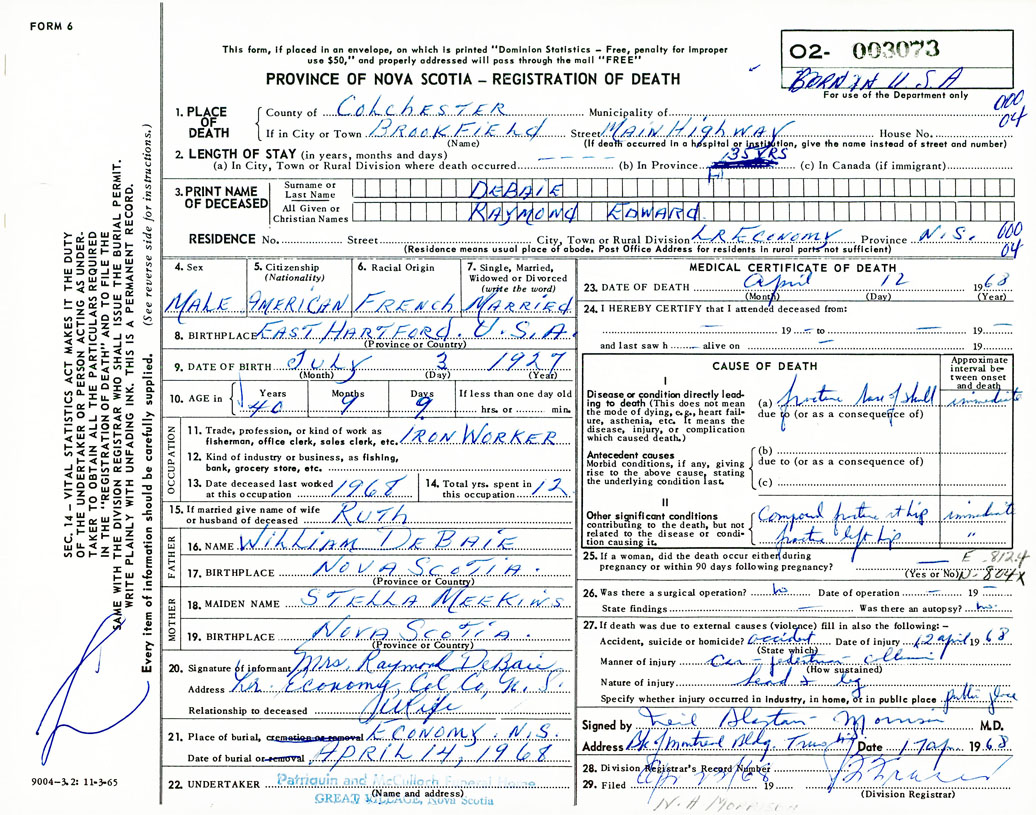 FORM 6
This form, if placed in an envelope, on which is printed "Dominion Statistics – Free, penalty for improper
use $50," and properly addressed will pass through the mail "FREE"
PROVINCE OF NOVA SCOTIA – REGISTRATION OF DEATH
02- 003073
BORN IN U.S.A
For use of the Department only
000
04
1. PLACE OF DEATH
County of COLCHESTER Municipality of
If in City or Town BROOKFIELD Street MAIN HIGHWAY House No.
(Name) (If death occurred in a hospital or institution, give the name instead of street and number)
2. LENGTH OF STAY (in years, months and days)
(a) In City, Town or Rural Division where death occurred (b) In Province 35 YRS (c) In Canada (if immigrant)
3. PRINT NAME OF DECEASED
Surname or Last Name DEBAIE
All Given or Christian Names RAYMOND EDWARD
RESIDENCE No. Street City, Town or Rural Division LR ECONOMY Province N.S.
(Residence means usual place of abode. Post Office Address for residents in rural parts not sufficient)
000
04
4. Sex MALE
5. Citizenship (Nationality) AMERICAN
6. Racial Origin FRENCH
7. Single, Married, Widowed or Divorced (write the word) MARRIED
8. BIRTHPLACE EAST HARTFORD. U.S.A.
(Province or Country)
9. DATE OF BIRTH JULY 3 1927
(Month) (Day) (Year)
10. AGE in Years Months Days If less than one day old
40 9 9 hrs. or min.
OCCUPATION
11. Trade, profession, or kind of work as fisherman, office clerk, sales clerk, etc. IRON WORKER
12. Kind of industry or business, as fishing, bank, grocery store, etc.
13. Date deceased last worked at this occupation 1968
14. Total yrs. spent in this occupation 12
15. If married give name of wife or husband of deceased RUTH
FATHER
16. NAME WILLIAM DEBAIE
17. BIRTHPLACE NOVA SCOTIA.
(Province or Country)
MOTHER
18. MAIDEN NAME STELLA MEEKINS
19. BIRTHPLACE NOVA SCOTIA.
(Province or Country)
20. Signature of informant Mrs. Raymond DeBaie
Address Lr. Economy, Col Co, N. S.
Relationship to deceased Wife
21. Place of burial, cremation or removal ECONOMY. N.S.
Date of burial or removal APRIL 14, 1968
22. UNDERTAKER Patriquin and McCulloch Funeral Home
(Name and address)
GREAT VILLAGE, Nova Scotia
MEDICAL CERTIFICATE OF DEATH
23. DATE OF DEATH April 12 1968
(Month) (Day) (Year)
24. I HEREBY CERTIFY that I attended deceased from:
19 – to 19
and last saw h alive on 19
CAUSE OF DEATH
Approximate interval between onset and death
I
Disease or condition directly leading to death (This does not mean the mode of dying, e.g., heart failure, asthenia, etc. It means the disease, injury, or complication which caused death.)
(a) fracture base of skull immediate
due to (or as a consequence of)
Antecedent causes
Morbid conditions, if any, giving rise to the above cause, stating the underlying condition last.
(b)
due to (or as a consequence of)
(c)
II
Other significant conditions contributing to the death, but not related to the disease or condition causing it.
Compound fracture rt hip immediate
fracture left hip "
25. If a woman, did the death occur either during pregnancy or within 90 days following pregnancy? (Yes or No)
E 8124
N. 804X
26. Was there a surgical operation? no Date of operation – 19 –
State findings – Was there an autopsy? no.
27. If death was due to external causes (violence) fill in also the following: –
Accident, suicide or homicide? accident Date of injury 12 April 1968
(State which)
Manner of injury car – pedestrian – collision
(How sustained)
Nature of injury head & leg
Specify whether injury occurred in industry, in home, or in public place public place
Signed by Neil Alastair Morrison M.D.
Address Bk of Montreal Bldg. Truro NS Date 17 Apr. 1968
28. Division Registrar's Record Number
29. Filed 19
(Division Registrar)
N. A MORRISON
SEC. 14 – VITAL STATISTICS ACT MAKES IT THE DUTY
OF THE UNDERTAKER OR PERSON ACTING AS UNDER-
TAKER TO OBTAIN ALL THE PARTICULARS REQUIRED
IN THE "REGISTRATION OF DEATH" AND TO FILE THE
SAME WITH THE DIVISION REGISTRAR WHO SHALL ISSUE THE BURIAL PERMIT.
WRITE PLAINLY WITH UNFADING INK. THIS IS A PERMANENT RECORD.
Every item of information should be carefully supplied. (See reverse side for instructions.)
9004–3.2: 11-3-65